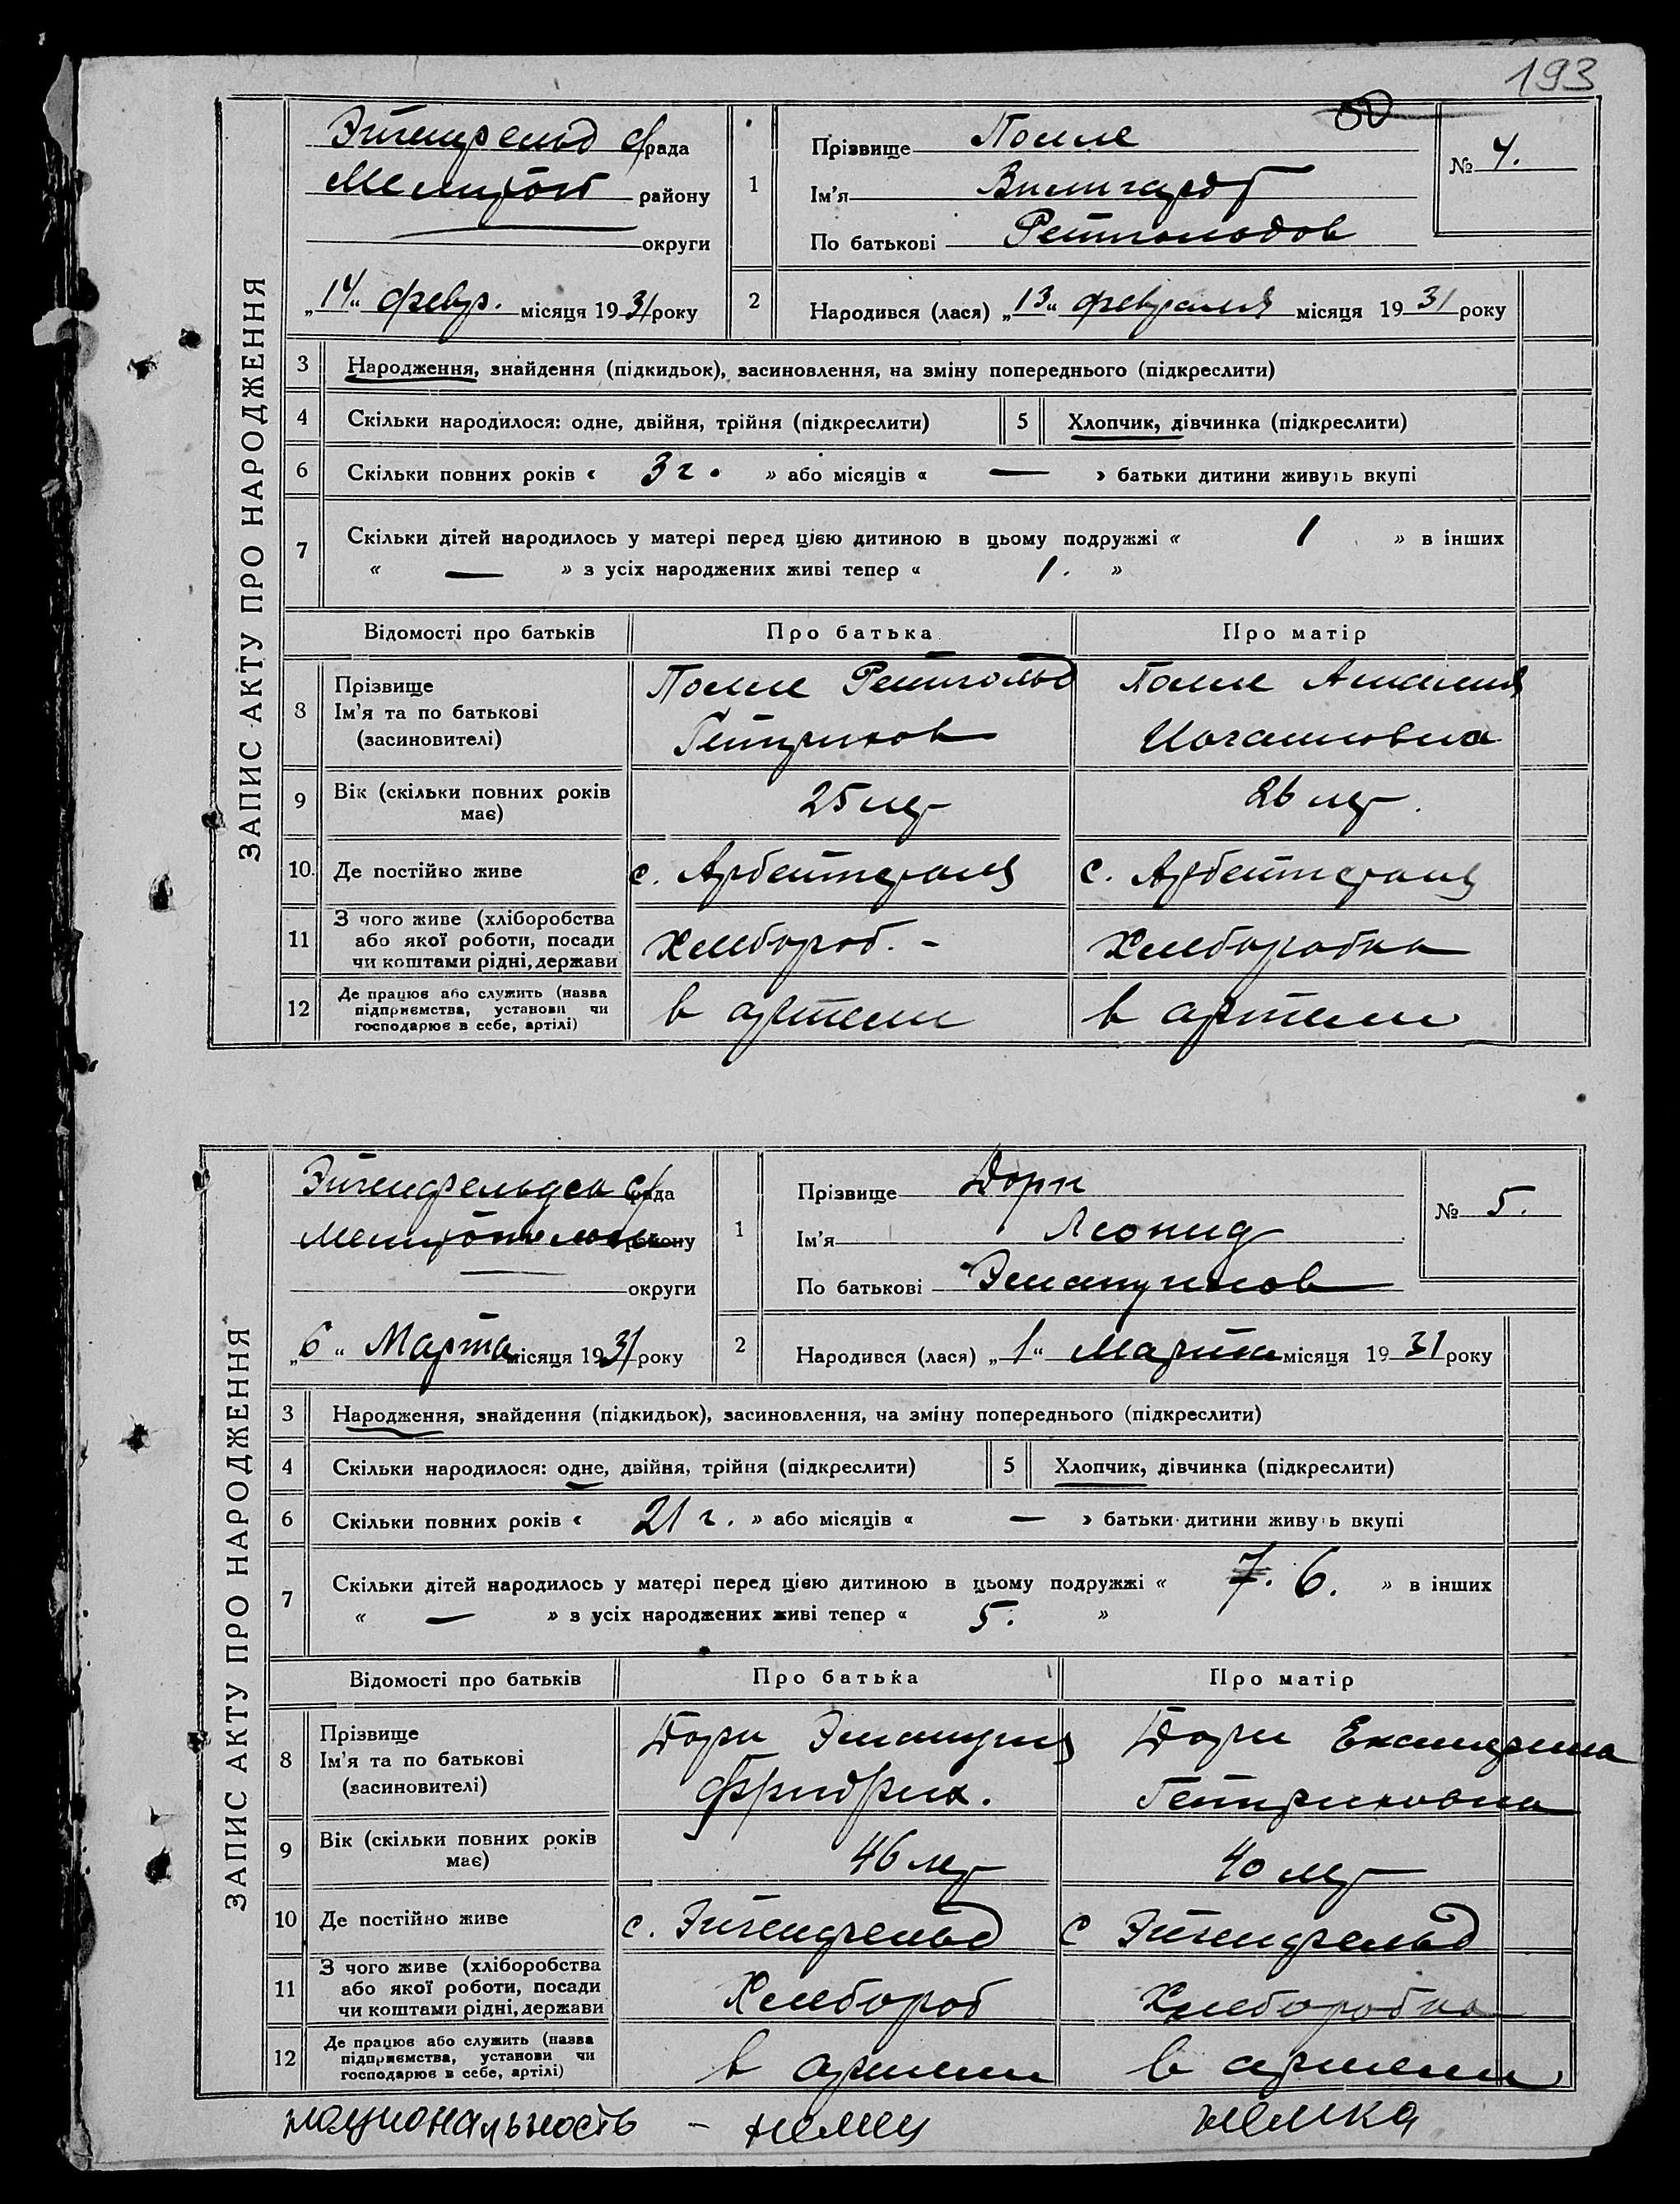 193
ЗАПИС АКТУ ПРО НАРОДЖЕННЯ
Эйгенфельд с/рада
Мелитоп району
округи
„14“ февр. місяця 1931 року
1
Прізвище Полле
Ім'я
По батькові Рейнгольдов
№ 4.
2
Народився (лася) „13“ февраля місяця 1931 року
3 Народження, знайдення (підкидьок), засиновлення, на зміну попереднього (підкреслити)
4 Скільки народилося: одне, двійня, трійня (підкреслити) 5 Хлопчик, дівчинка (підкреслити)
6 Скільки повних років « 3 г. » або місяців « — » батьки дитини живуть вкупі
7 Скільки дітей народилось у матері перед цією дитиною в цьому подружжі « 1 » в інших
« — » з усіх народжених живі тепер « 1. »
Відомості про батьків Про батька Про матір
8 Прізвище
Ім'я та по батькові
(засиновителі)
Полле Рейнгольд
Гейнрихов
Полле Амалия
Иогановна
9 Вік (скільки повних років
має)
25 лет
26 лет.
10. Де постійно живе с. Арбейтгейм с. Арбейтгейм
11 З чого живе (хліборобства
або якої роботи, посади
чи коштами рідні, держави
Хлебороб. -
Хлеборобка
12 Де працює або служить (назва
підприємства, установи чи
господарює в себе, артілі)
в артели
в артели
ЗАПИС АКТУ ПРО НАРОДЖЕННЯ
Эйгенфельдск с/рада
району
округи
„6“ Марта місяця 1931 року
1
Прізвище Дорн
Ім'я Леонид
По батькові Эмануилов
№ 5.
2
Народився (лася) „1“ Марта місяця 1931 року
3 Народження, знайдення (підкидьок), засиновлення, на зміну попереднього (підкреслити)
4 Скільки народилося: одне, двійня, трійня (підкреслити) 5 Хлопчик, дівчинка (підкреслити)
6 Скільки повних років « 21 г. » або місяців « — » батьки дитини живуть вкупі
7 Скільки дітей народилось у матері перед цією дитиною в цьому подружжі « 7. 6. » в інших
« — » з усіх народжених живі тепер « 5. »
Відомості про батьків Про батька Про матір
8 Прізвище
Ім'я та по батькові
(засиновителі)
Дорн Эмануил
Фридрих.
Дорн Екатерина
Гейнриховна
9 Вік (скільки повних років
має)
46 лет
40 лет
10 Де постійно живе с. Эйгенфельд с Эйгенфельд
11 З чого живе (хліборобства
або якої роботи, посади
чи коштами рідні, держави
Хлебороб
Хлеборобка
12 Де працює або служить (назва
підприємства, установи чи
господарює в себе, артілі)
в артели
в артели
национальность - немец немка